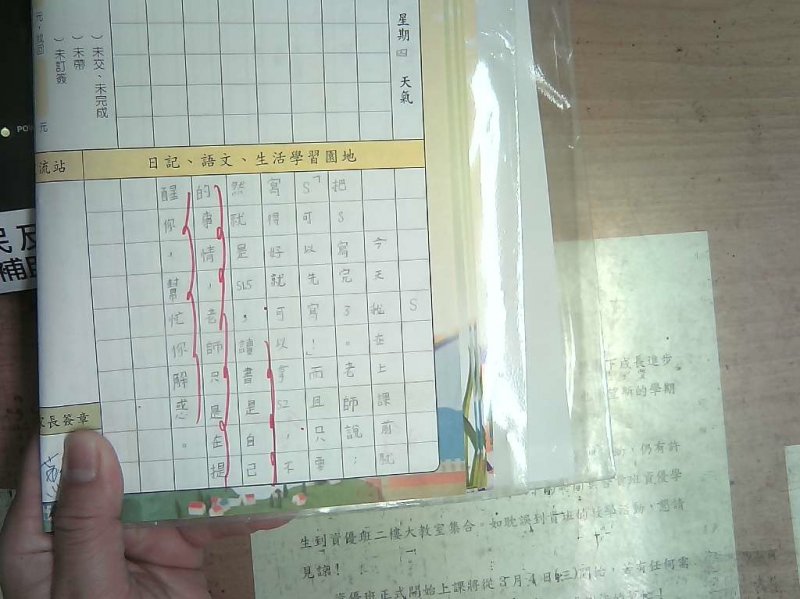 星期四 天氣
)未交、未完成
)未帶
)未訂簽
元
流站
日記、語文、生活學習園地
S
今天我在上課前就
把S寫完了。老師說：
「S可以先寫！而且只要
寫得好就可以拿S2，不
然就是S1.5。讀書是自己
的事情，老師只是在提
醒你，幫忙你解惑。
長簽章
民及
補
下成長進步
斯的學期
仍有許
班資優學
生到資優班二樓大教室集合。如耽誤到貴班的教學活動，懇請
見諒！
資優班正式開始上課將從3月4日(三)開始，若有任何需